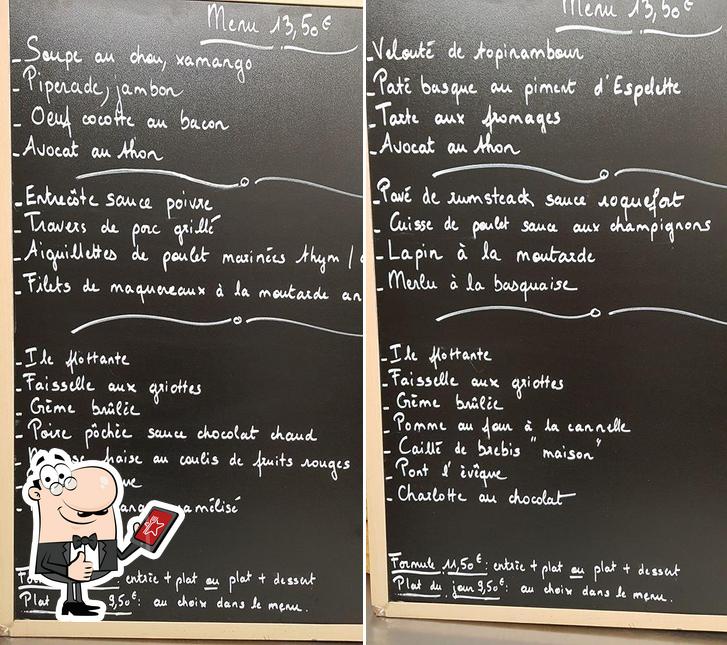 Menu 13,50€
- Soupe au chou, xamango
- Piperade, jambon
- Oeuf cocotte au bacon
- Avocat au thon
- Entrecôte sauce poivre
- Travers de porc grillé
- Aiguillettes de poulet marinées thym /
- Filets de maquereaux à la moutarde an
- Ile flottante
- Faisselle aux griottes
- Crème brûlée
- Poire pôchée sauce chocolat chaud
fraise au coulis de fruits rouges
entrée + plat ou plat + dessert
Plat 9,50€: au choix dans le menu.
Menu 13,50€
- Velouté de topinambour
- Paté basque au piment d'Espelette
- Tarte aux fromages
- Avocat au thon
- Pavé de rumsteack sauce roquefort
- Cuisse de poulet sauce aux champignons
- Lapin à la moutarde
- Merlu à la basquaise
- Ile flottante
- Faisselle aux griottes
- Crème brûlée
- Pomme au four à la cannelle
- Caillé de brebis "maison"
- Pont l'évêque
- Charlotte au chocolat
Formule 11,50€: entrée + plat ou plat + dessert
Plat du jour 9,50€: au choix dans le menu.